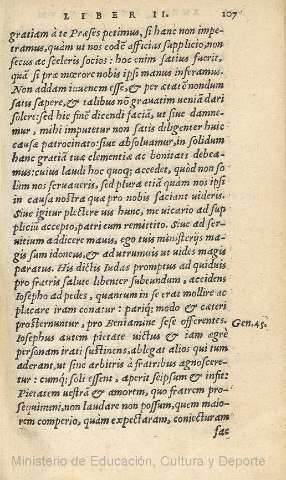 LIBER II. 107
gratiam à te Præses petimus, si hanc non impe-
tramus, quàm ut nos eodē afficias supplicio, non
secus ac sceleris socios: hoc enim satius fuerit,
quã si præ mœrore nobis ipsi manus inferamus.
Non addam iuuenem esse, & per ætatē nondum
satis sapere, & talibus nō grauatim veniā dari
solere: sed hic finē dicendi faciã, ut siue damne-
mur, mihi imputetur non satis diligenter huic
causæ patrocinato: siue absoluamur, in solidum
hanc gratiā tuæ clementiæ ac bonitati debea-
mus: cuius laudi hoc quoq; accedet, quòd non so
lùm nos seruaueris, sed plura etiā quàm nos ipsi
in causa nostra qua pro nobis faciant videris.
Siue igitur plectere uis hunc, me uicario ad sup-
plicium accepto, patri eum remittito. Siue ad ser-
uitium addicere mauis, ego tuis ministerijs ma-
gis sum idoneus, & ad utrumuis ut uides magis
paratus. His dictis Iudas promptus ad quiduis
pro fratris salute libenter subeundum, accidens
Iosepho ad pedes, quantum in se erat mollire ac
placare iram conatur: pariq; modo & cæteri
prosternuntur, pro Beniamine sese offerentes.
Iosephus autem pietate victus & iam ægrè Gen. 45.
personam irati sustinens, ablegat alios qui tum
aderant, ut sine arbitris à fratribus agnoscere-
tur: cumq; soli essent, aperit seipsum & infit:
Pietatem uestrã & amorem, quo fratrem pro-
sequimini, non laudare non possum, quem maio-
rem comperio, quàm expectaram, coniecturam
fac
Ministerio de Educación, Cultura y Deporte